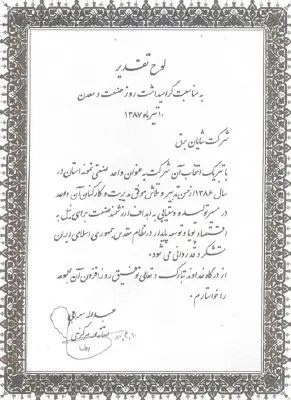 لوح تقدیر
به مناسبت گرامیداشت روز صنعت و معدن
۱۰ تیر ماه ۱۳۸۷
شرکت شایان برق
با تبریک انتخاب آن شرکت به عنوان واحد صنعتی نمونه استان در
سال ۱۳۸۶ از حسن تدبیر و تلاش موفق مدیریت و کارکنان آن واحد
در مسیر تولید و دستیابی به اهداف ارزشمند صنعت برای نیل به
اقتصاد پویا و توسعه پایدار در نظام مقدس جمهوری اسلامی ایران
تشکر و قدردانی می شود.
از درگاه خداوند تبارک و تعالی توفیق روزافزون آن مجموعه
را خواستارم.
استاندار مرکزی